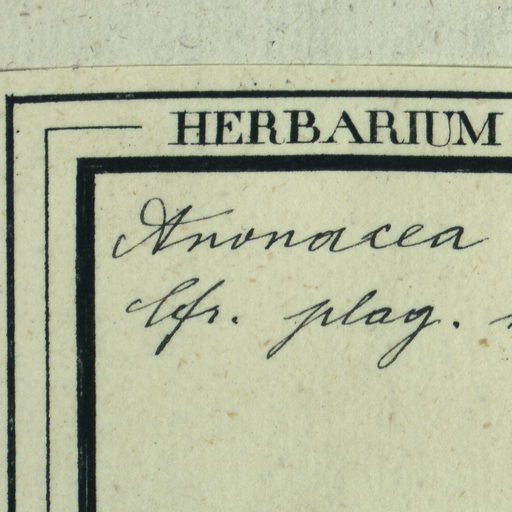 HERBARIUM
Anonacea
Cfr. plag.